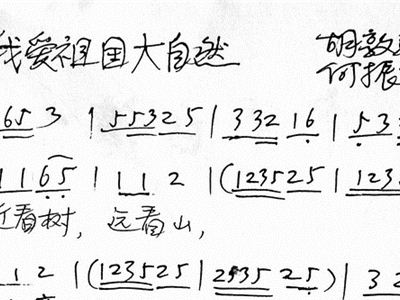 我爱祖国大自然 胡敦
何振
65 3 | 55325 | 332 16 | 5 3
1 1 65 | 1 1 2 | (123525 | 123
近看树，远看山，
1 2 | (123525 | 2535 25) | 3 2